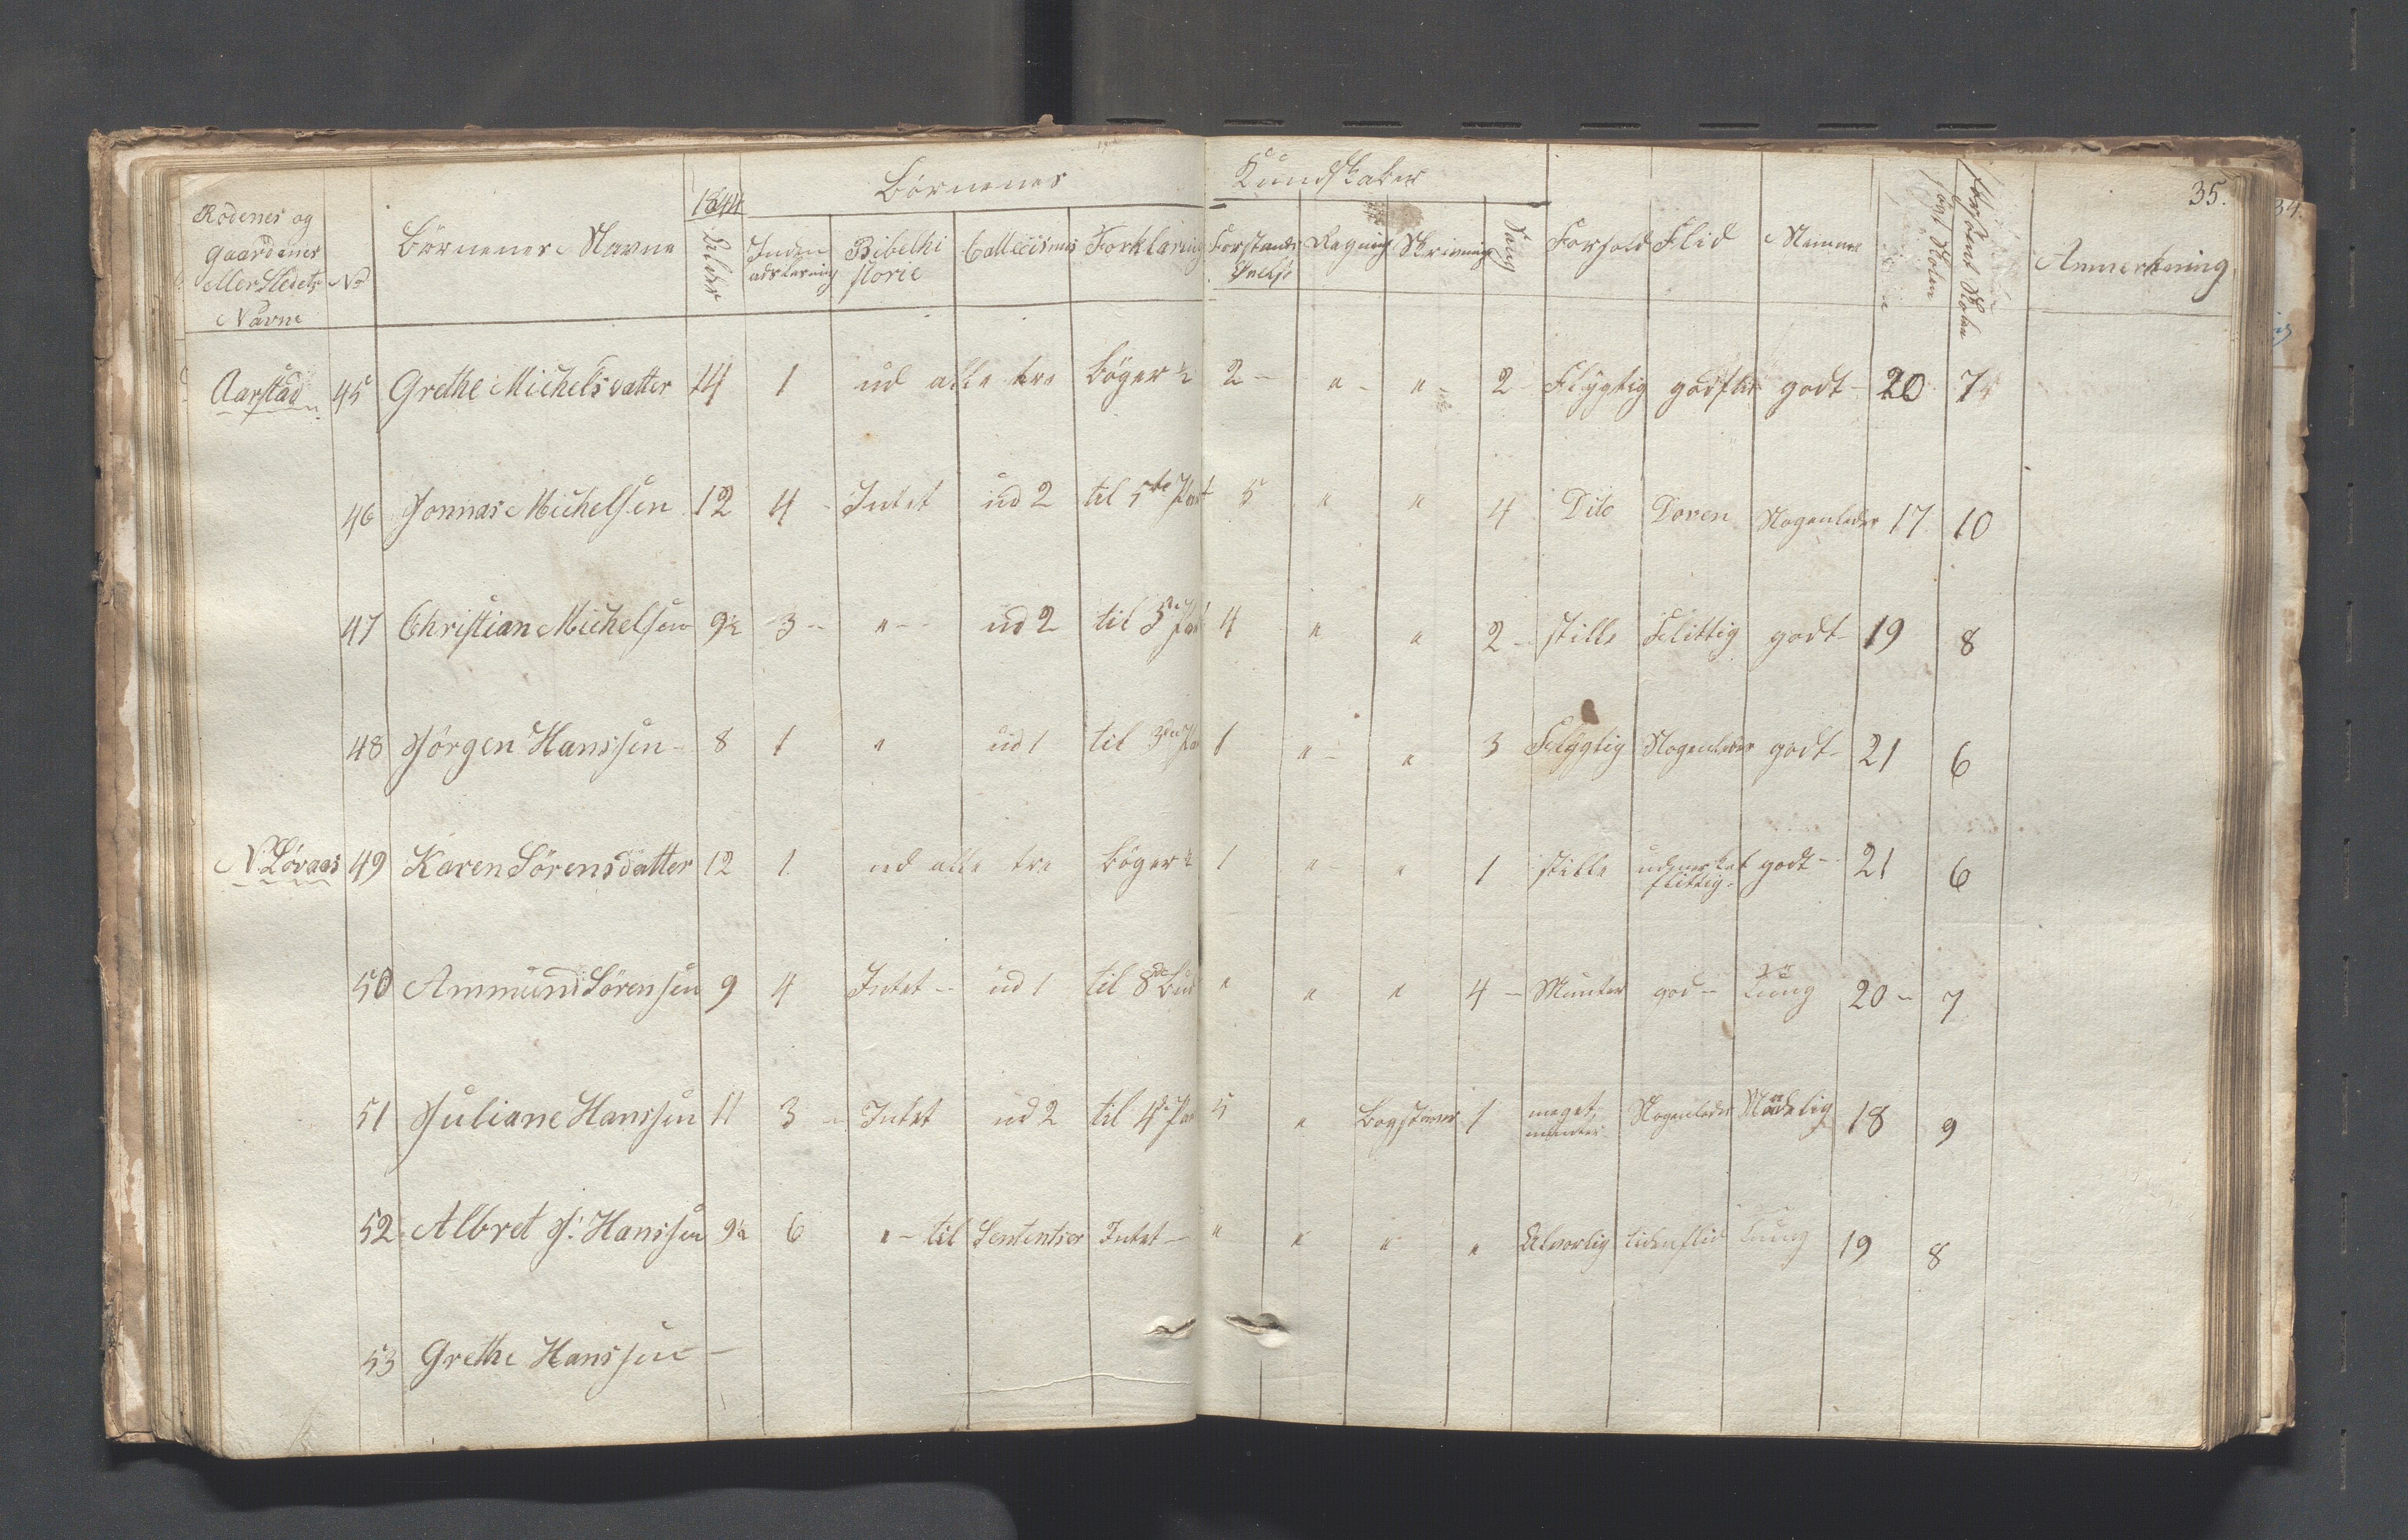 35.
Rodenes og Gaardenes eller Stedets Navne No Börnenes Navne 1844 Alder Börnenes Kundskaber
Inden adslæsning Bibelhi storie Cattecismus Forklaring Forstands Regning Skrivning Sang Forhold Flid Nemme søgt Skolen forsømt Skolen Anmerkning
Aarstad 45 Grethe Michelsdatter 14 1 ud alle tre böger 2 - " - " 2 - Flygtig godt - 20 7
46 Jonnas Michelsen 12 4 - Intet ud 2 til 5te Part 5 " " 4 Dito Doven Nogenledes 17 10
47 Christian Michelsen 9½ 3 - " - ud 2 til 5te Part 4 " " 2 - stille Flittig godt - 19 8
48 Jörgen Hanssen - 8 1 " ud 1 til 3die 1 " - " 3 Flygtig Nogenledes godt - 21 6
N. Lövaas 49 Karen Sörensdatter 12 1 ud alle tre böger 1 " - " 1 stille udmerket flittig godt - 21 6
50 Ammund Sörensen 9 4 Intet - ud 1 til 8de Bud " " " 4 - Munter god - Tung 20 - 7
51 Juliane Hanssen 11 3 - Intet ud 2 til 4de 5 " Bogstaver 1 meget munter Nogenledes Maadelig 18 9
52 Albret J. Hanssen 9½ 6 " - til Sententser Intet - " " " " Alvorlig liden flid Tung 19 8
53 Grethe Hanssen -